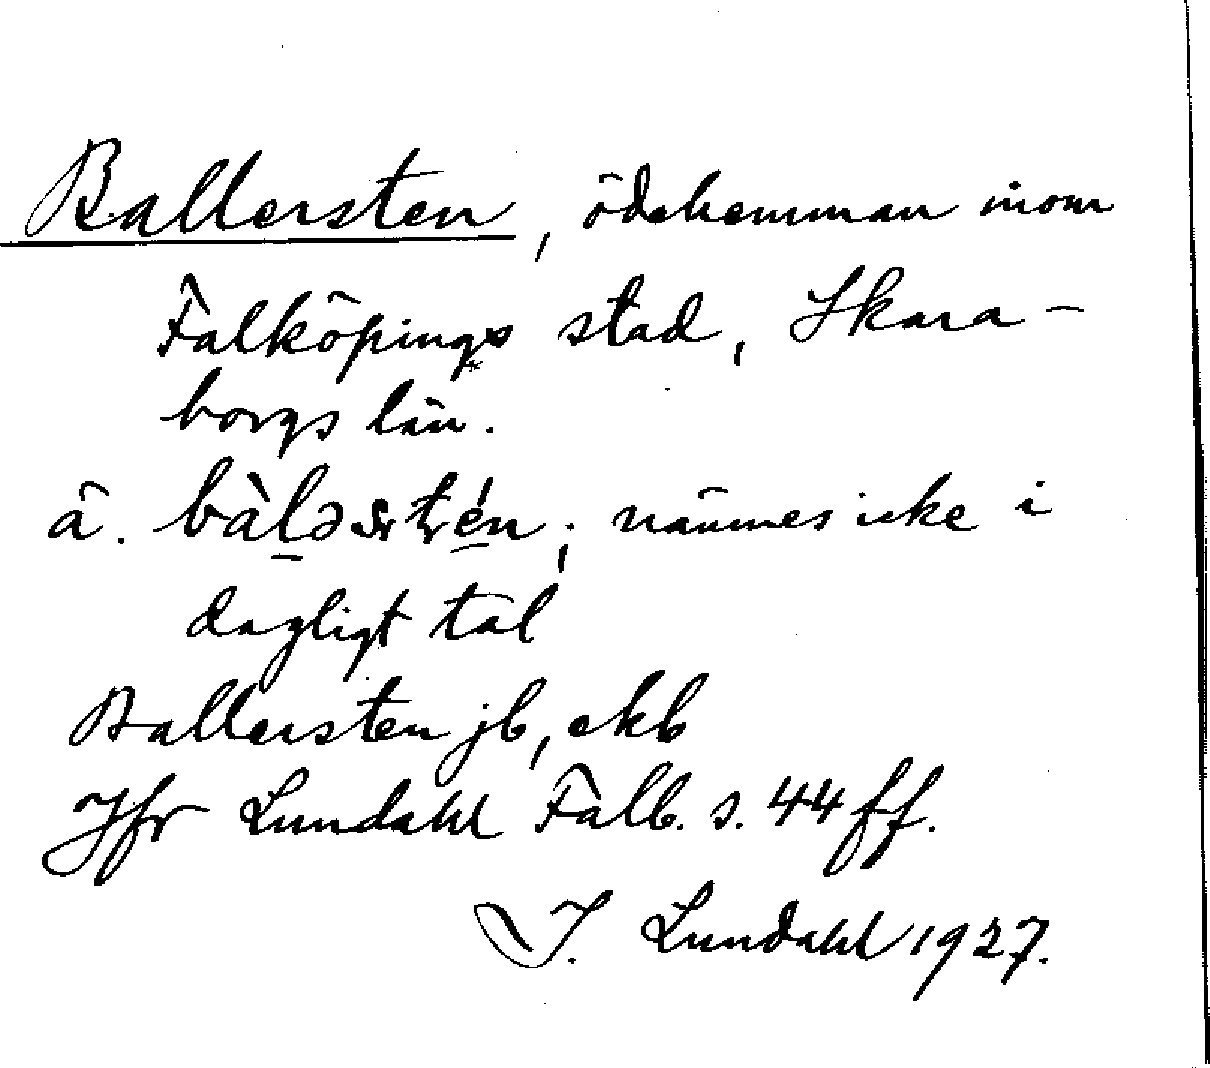 Ballersten, ödehemman inom
Falköpings stad, Skara-
borgs län.
å. bàl̠ərstén̠; nämnes icke i
dagligt tal
Ballersten jb, ekb
Jfr Lundahl Falb. s. 44 ff.
I. Lundahl 1927.